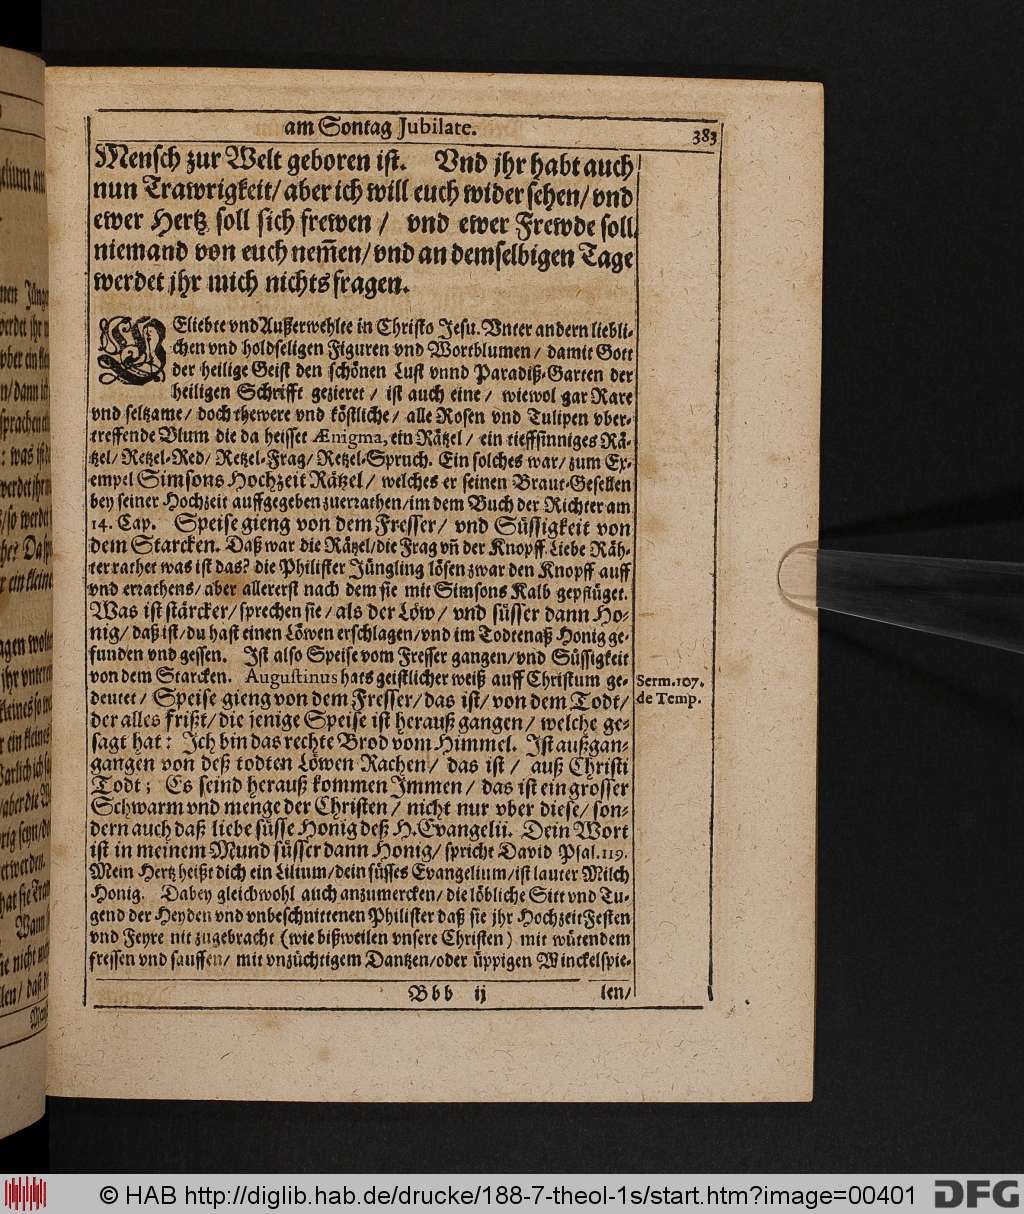 am Sontag Jubilate.
383
Mensch zur Welt geboren ist. Vnd jhr habt auch
nun Trawrigkeit/ aber ich will euch wider sehen/ vnd
ewer Hertz soll sich frewen / vnd ewer Frewde soll
niemand von euch nem̃en/ vnd an demselbigen Tage
werdet jhr mich nichts fragen.
GEliebte vnd Außerwehlte in Christo Jesu. Vnter andern liebli-
chen vnd holdseligen Figuren vnd Wortblumen / damit Gott
der heilige Geist den schönen Lust vnnd Paradiß-Garten der
heiligen Schrifft gezieret / ist auch eine / wiewol gar Rare
vnd seltzame / doch thewere vnd köstliche / alle Rosen vnd Tulipen vber-
treffende Blum die da heisset Ænigma, ein Rätzel / ein tieffsinniges Rä-
tzel/ Retzel-Red/ Retzel-Frag/ Retzel-Spruch. Ein solches war/ zum Ex-
empel Simsons Hochzeit Rätzel / welches er seinen Braut-Gesellen
bey seiner Hochzeit auffgegeben zuerrathen/ im dem Buch der Richter am
14. Cap. Speise gieng von dem Fresser / vnd Süssigkeit von
dem Starcken. Daß war die Rätzel/ die Frag vn̄ der Knopff. Liebe Räh-
ter rathet was ist das? die Philister Jüngling lösen zwar den Knopff auff
vnd errathens / aber allererst nach dem sie mit Simsons Kalb gepflüget.
Was ist stärcker / sprechen sie / als der Löw / vnd süsser dann Ho-
nig/ daß ist/ du hast einen Löwen erschlagen/ vnd im Todtenaß Honig ge-
funden vnd gessen. Ist also Speise vom Fresser gangen/ vnd Süssigkeit
von dem Starcken. Augustinus hats geistlicher weiß auff Christum ge-
deutet / Speise gieng von dem Fresser/ das ist/ von dem Todt/
der alles frißt/ die jenige Speise ist herauß gangen/ welche ge-
sagt hat: Ich bin das rechte Brod vom Himmel. Ist außgan-
gangen von deß todten Löwen Rachen/ das ist / auß Christi
Todt; Es seind herauß kommen Immen / das ist ein grosser
Schwarm vnd menge der Christen / nicht nur vber diese/ son-
dern auch daß liebe süsse Honig deß H. Evangelii. Dein Wort
ist in meinem Mund süsser dann Honig/ spricht David Psal. 119.
Mein Hertz heißt dich ein Lilium/ dein süsses Evangelium/ ist lauter Milch
Honig. Dabey gleichwohl auch anzumercken/ die löbliche Sitt vnd Tu-
gend der Heyden vnd vnbeschnittenen Philister daß sie jhr Hochzeit Festen
vnd Feyre nit zugebracht (wie bißweilen vnsere Christen) mit wütendem
fressen vnd sauffen/ mit vnzüchtigem Dantzen/ oder üppigen Winckelspie-
Serm. 107.
de Temp.
Bbb ij
len/
© HAB http://diglib.hab.de/drucke/188-7-theol-1s/start.htm?image=00401
DFG